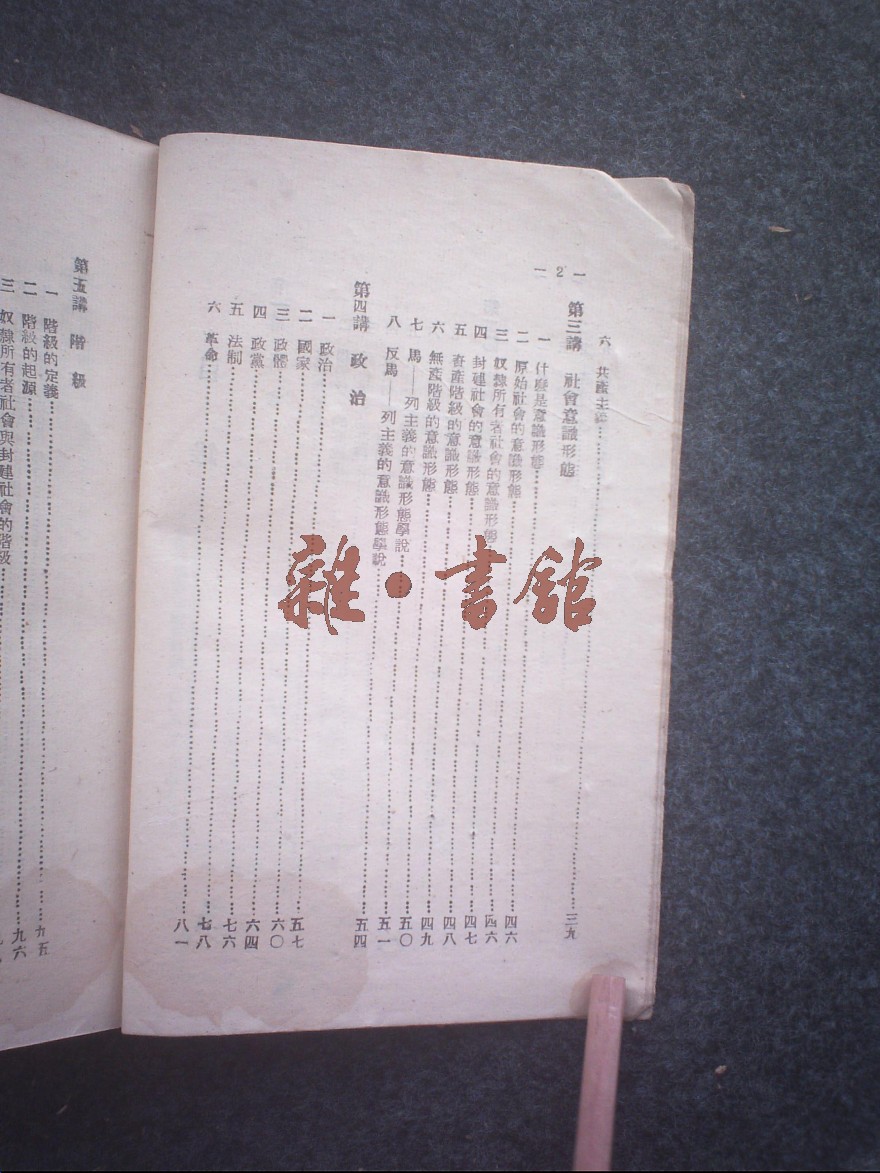 一 2 一
六 共產主義……三九
第三講 社會意識形態
一 什麼是意識形態……四六
二 原始社會的意識形態……四六
三 奴隸所有者社會的意識形態……四七
四 封建社會的意識形態……四八
五 資產階級的意識形態……四九
六 無產階級的意識形態……五〇
七 馬——列主義的意識形態學說……五一
八 反馬——列主義的意識形態學說……五四
第四講 政治
一 政治……五七
二 國家……六〇
三 政體……六四
四 政黨……七六
五 法制……七八
六 革命……八一
第五講 階級
一 階級的定義……九五
二 階級的起源……九六
三 奴隸所有者社會與封建社會的階級
雜·書館